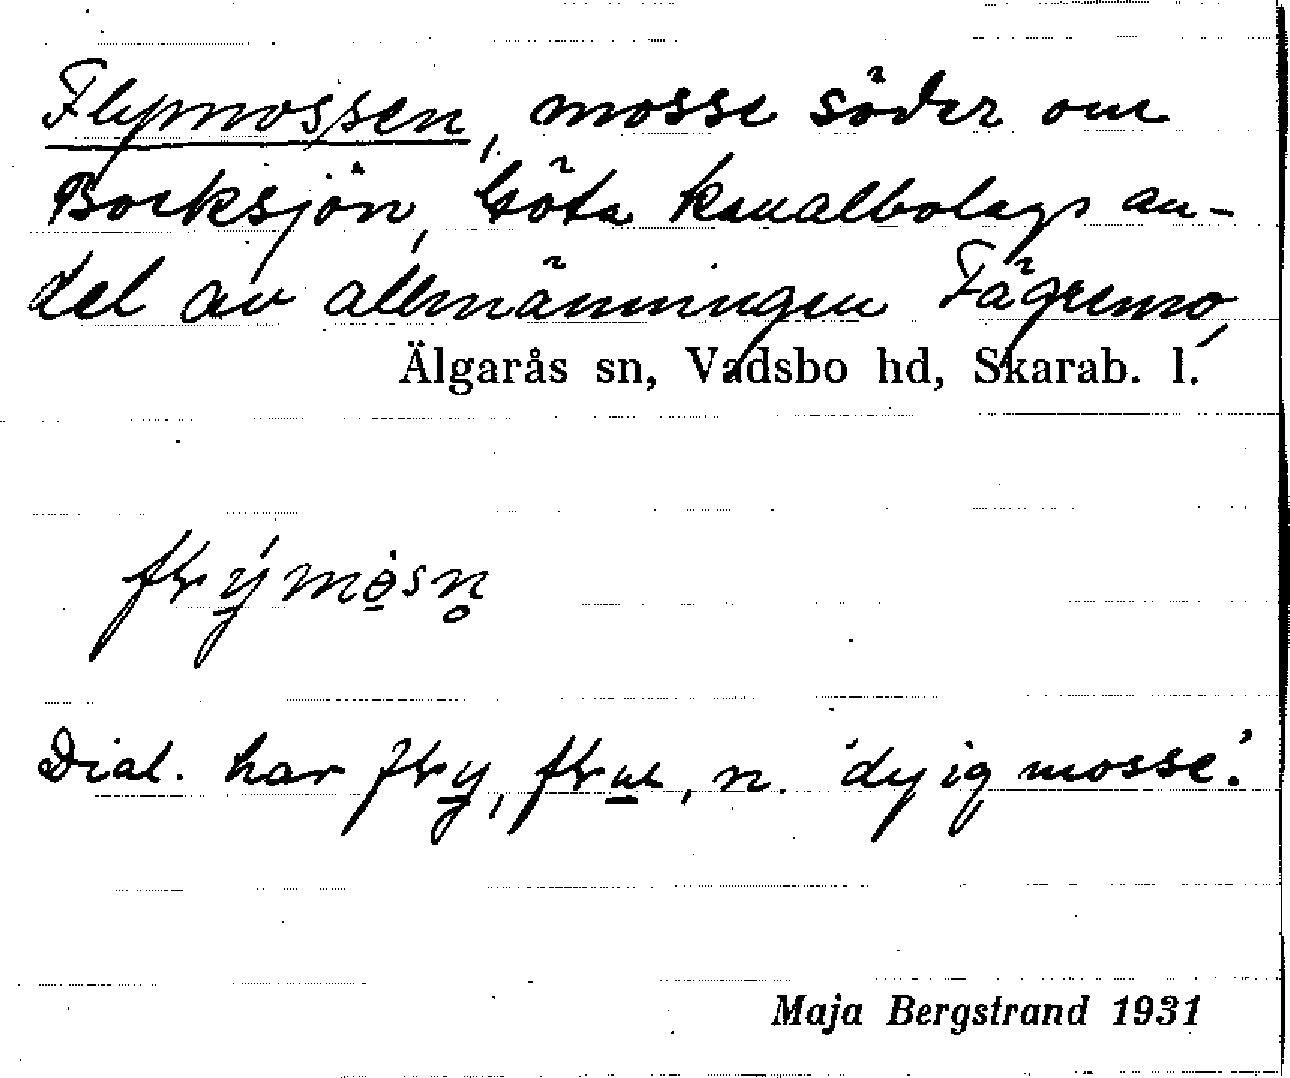 Flymossen, mosse söder om
Bocksjön, Göta kanalbolags an-
del av allmänningen Fägremo,
Älgarås sn, Vadsbo hd, Skarab. l.
Dial. har n. 'dyig mosse'.
Maja Bergstrand 1931